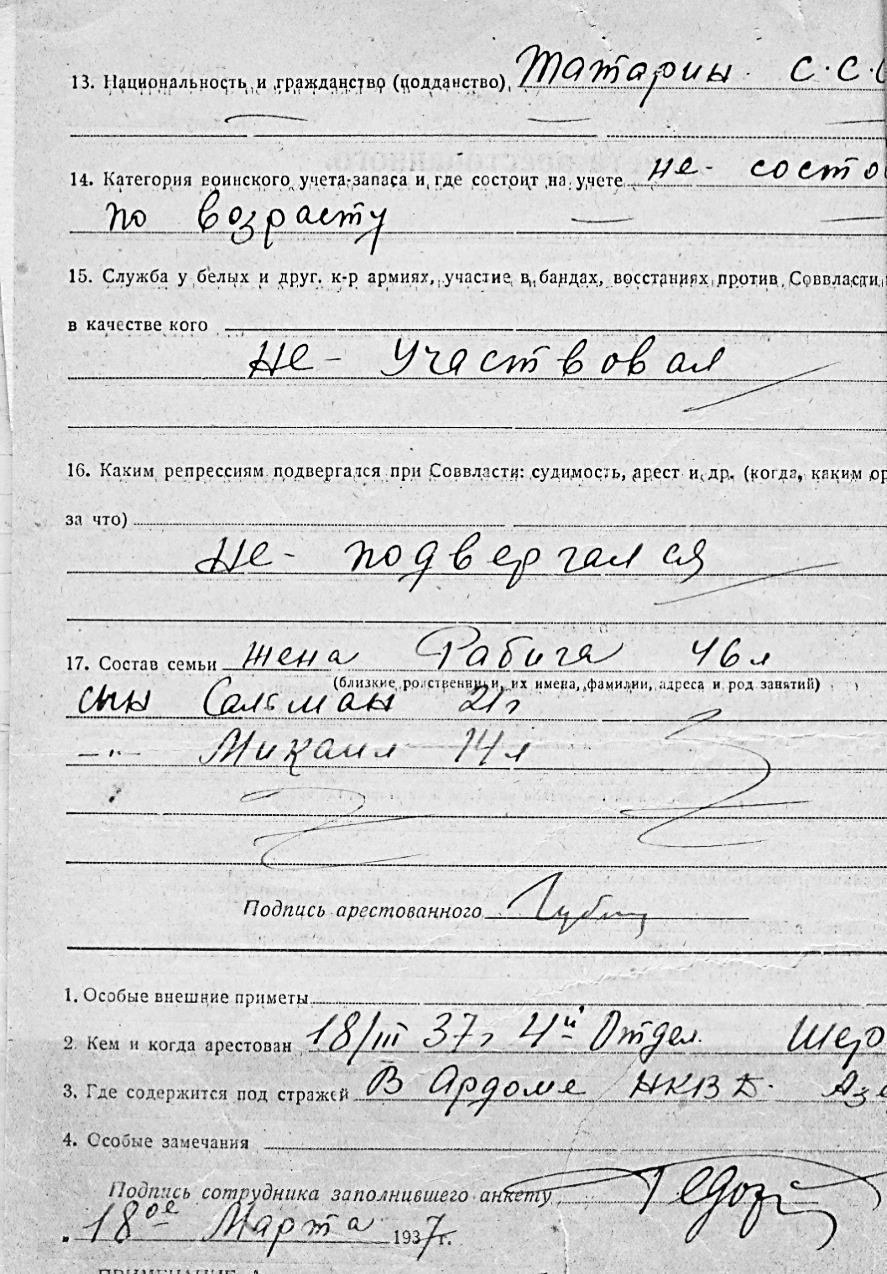 13. Национальность и гражданство (подданство) Татарин. С.С.
14. Категория воинского учета-запаса и где состоит на учете не- состо
по возрасту
15. Служба у белых и друг. к-р армиях, участие в бандах, восстаниях против Соввласти
в качестве кого
Не- Участвовал
16. Каким репрессиям подвергался при Соввласти: судимость, арест и др. (когда, каким ор
за что)
Не- подвергался
17. Состав семьи жена Рабига 46 л
(близкие родственники, их имена, фамилии, адреса и род занятий)
сын Салман 21 г
—"— Микаил 14 л
Подпись арестованного
1. Особые внешние приметы
2. Кем и когда арестован 18/III 37 г 4й Отдел.
3. Где содержится под стражей В Ардоме НКВД. Аз
4. Особые замечания
Подпись сотрудника заполнившего анкету
18ое Марта 1937 г.